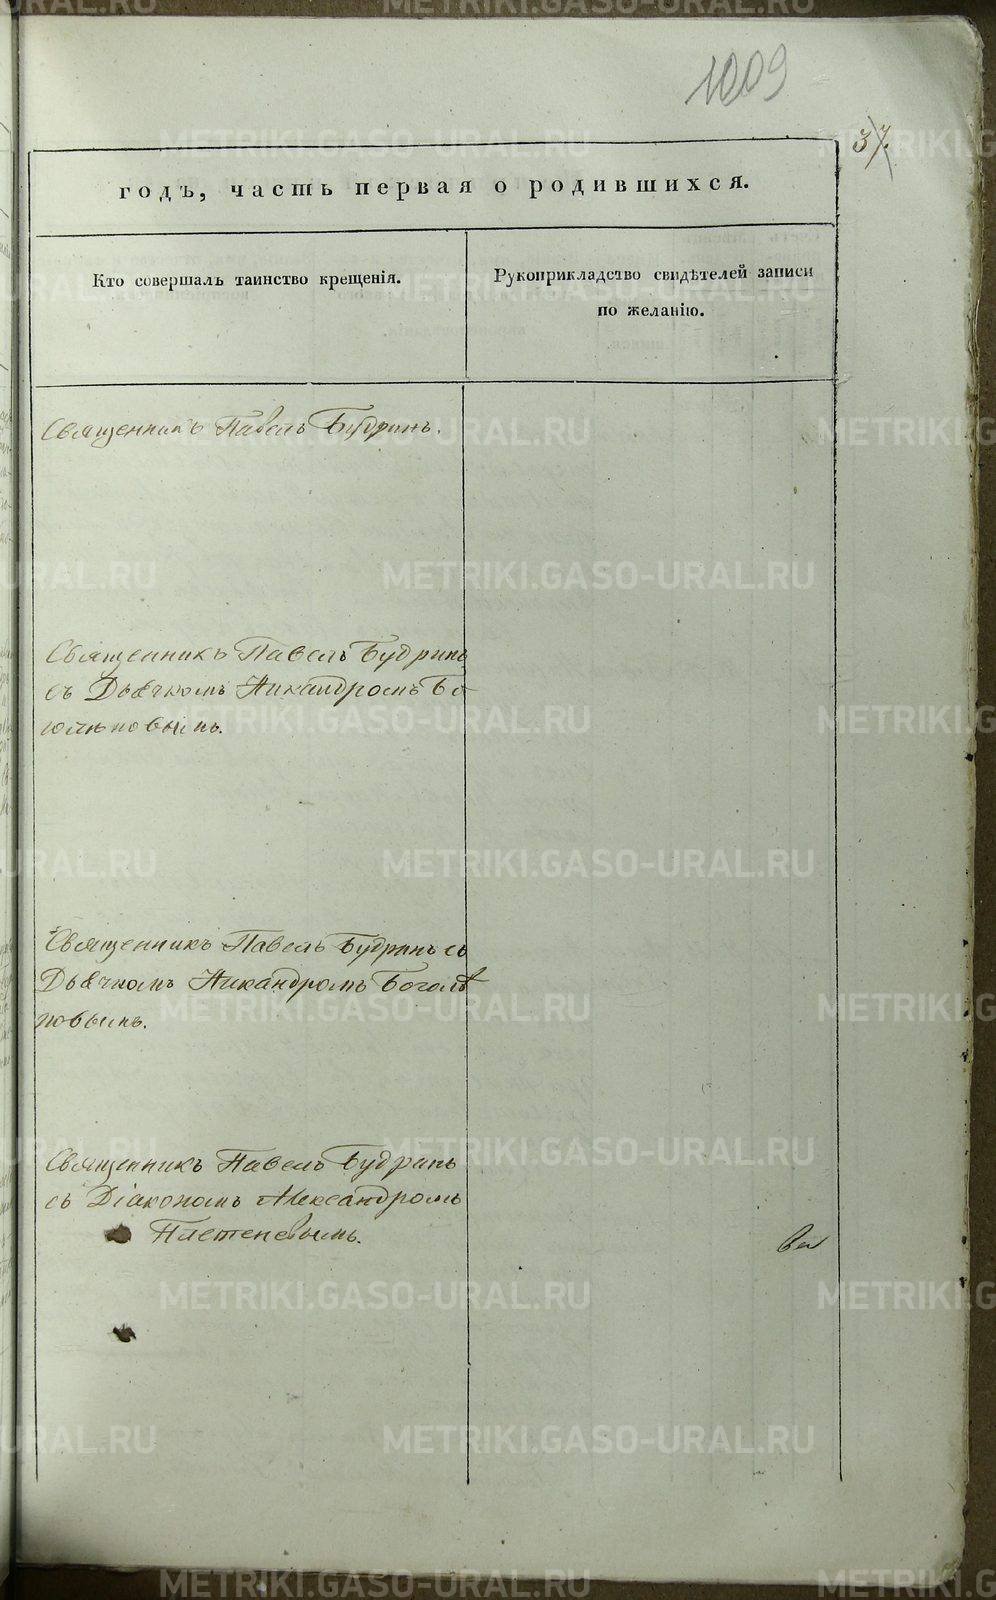 1009
37.
годъ, часть первая о родившихся.
Кто совершалъ таинство крещенія.
Рукоприкладство свидѣтелей записи
по желанію.
Священникъ Павелъ Будринъ.
Священникъ Павелъ Будринъ
съ Дьячкомъ Никандромъ Бо-
голѣповымъ.
Священникъ Павелъ Будринъ съ
Дьячкомъ Никандромъ Боголѣ
повымъ.
Священникъ Павелъ Будринъ
съ Діакономъ Александромъ
Плетеневымъ.
METRIKI.GASO-URAL.RU